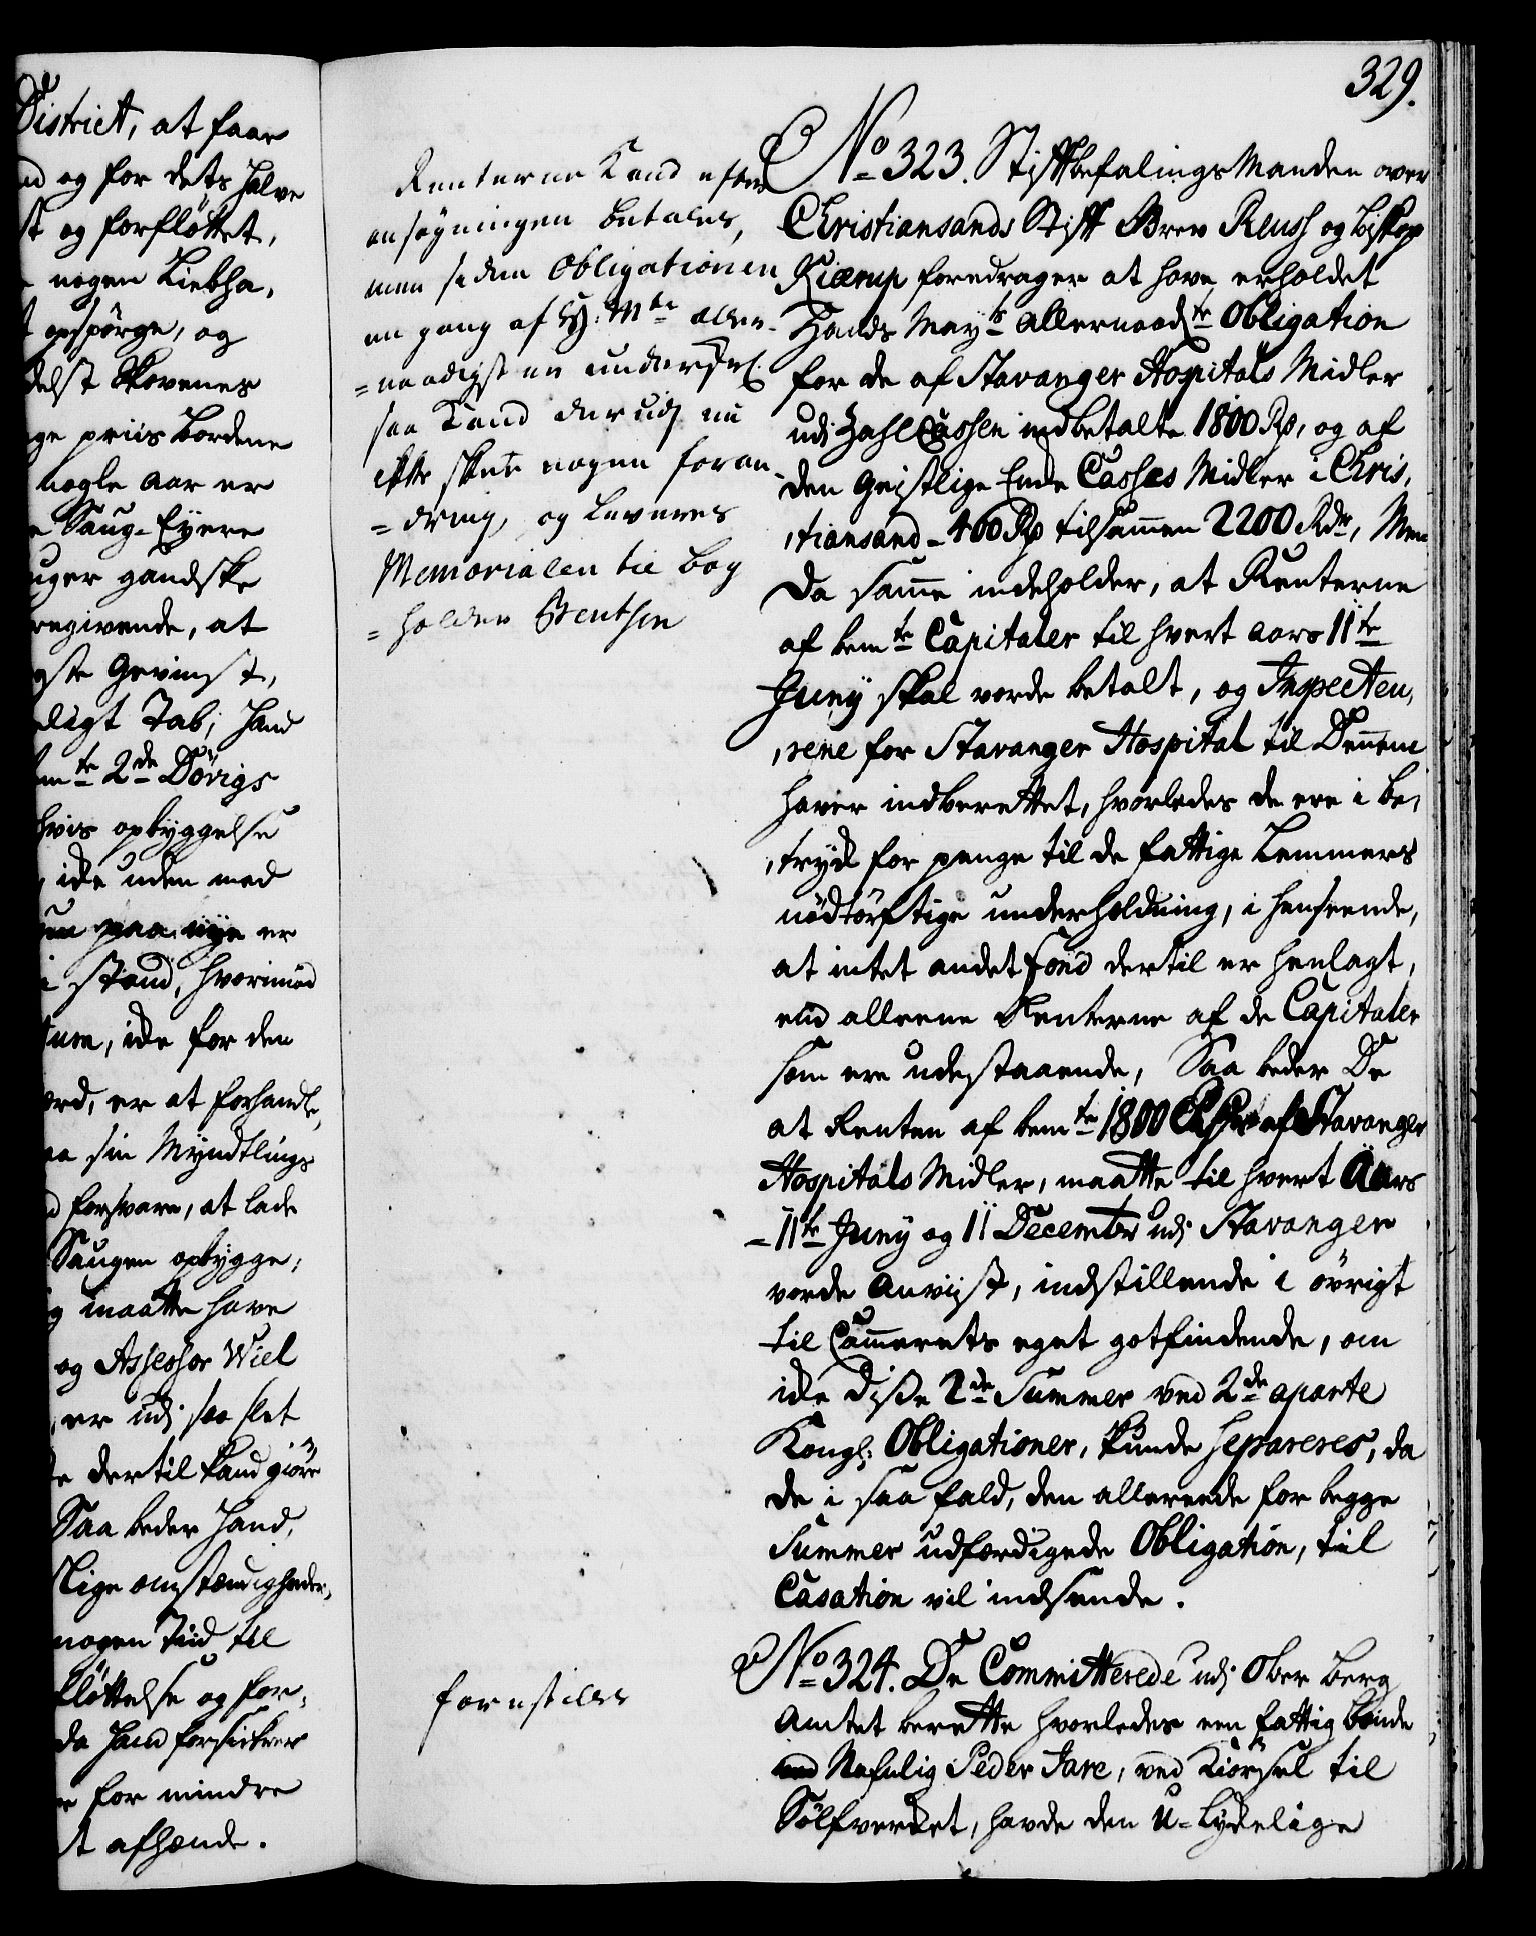 District, at faar
og for dets halve
og forfløttet,
nogen Liebha,
opspörge, og
Skovenes
priis Bordene
nogle Aar er
Saug-Eyere
gandske
regivende, at
Gevinst,
Tab; hand
2de Döviger
hvis opbyggelse
icke uden med
paa nye er
i stand, hvorimod
icke for den
er at forhandle,
sin Myndtlings
forsvare, at lade
Saugen opbygge;
maatte have
og Assessor Wiel
er udj saa slet
dertil kand giöre
Saa beder hand,
slige omstændigheder,
nogen Tiid til
fløttelse og for,
da hand forsickrer
for mindre
afhænde.
329.
Renterne Kand efter
ansøgningen betales,
men siden Obligationen
en gang af Hs: Mte aller-
=naadigst er underskr.
saa Kand der udj nu
ikke skee nogen foran-
=dring, og leveres
Memorialen til bog
=holder Bentsen
No 323. StiftbefalingsManden over
Christiansands Stift Grev Reuss og Biskop
Kiærup foredrager at have erholdet
Hands Mayts allernaadte Obligation
for de af Stavanger Hospitals Midler
udj ZahlCassen indbetalte 1800 Rd, og af
den Geistlige Enke Casses Midler i Chris,
,tiansand - 400 Rd tilsamen 2200 Rdr, Men
da samme indeholder, at Renterne
af bemte Capitaler til hvert Aars 11te
Juny skal vorde betalt, og Inspecteu,
,rene for Stavanger Hospital til Dennem
haver indberettet, hvorledes de ere i be,
,tryck for penge til de fattige Lemmers
nödtörftige underholdning, i henseende,
at intet andet Fond dertil er henlagt,
end alleene Renterne af de Capitaler
som ere udestaaende, Saa beder De
at Renten af bemte 1800 Rdr af Stavanger
Hospitals Midler, maatte til hvert Aars
- 11te Juny og 11 Decembr udj Stavanger
vorde Anviist, indstillende i övrigt
til Cammerets eget gotfindende, om
icke disse 2de Summer ved 2de aparte
Kongl: Obligationer, kunde separeres, da
de i saa fald, den allereede for begge
Summer udferdigede Obligation, til
Casation vil indsende.
forestilles
No 324. De Committerede udj Ober Berg
Amtet berette hvorledes een fattig Bonde
ved Nafnlig Peder Jare, ved Kiörsel til
Sölfverket, havde den u-lyckelige